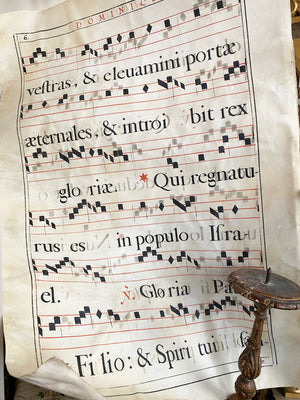 6 DOMINICA
vestras, & eleuamini portæ
æternales, & introi bit rex
glo riæ. * Qui regnatu-
rus es in populo Isra-
el. V. Glo ria Pa
Fi lio: & Spiri tui